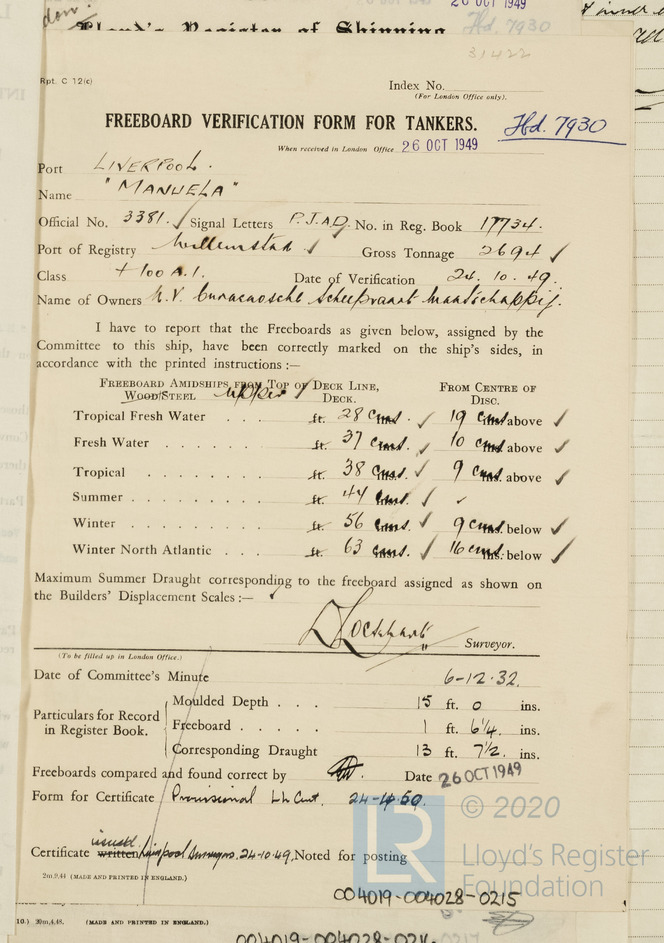 don.
26 OCT 1949
Lloyd's Register of Shipping
Hd. 7930
31422
Rpt. C 12(c)
Index No.
(For London Office only).
FREEBOARD VERIFICATION FORM FOR TANKERS.
Hd. 7930
When received in London Office 26 OCT 1949
Port LIVERPOOL.
Name "MANUELA"
Official No. 3381. Signal Letters P.J.A.D. No. in Reg. Book 17734.
Port of Registry Willemstad Gross Tonnage 2694
Class + 100 A.1. Date of Verification 24.10.49.
Name of Owners N.V. Curacaosche Scheepvaart Maatschappij.
I have to report that the Freeboards as given below, assigned by the
Committee to this ship, have been correctly marked on the ship's sides, in
accordance with the printed instructions :—
FREEBOARD AMIDSHIPS FROM TOP OF DECK LINE, FROM CENTRE OF
WOOD/STEEL upper DECK. DISC.
Tropical Fresh Water . . . ft. 28 cms. 19 cms above
Fresh Water . . . . . . ft. 37 cms. 10 cms above
Tropical . . . . . . . . ft. 38 cms. 9 cms above
Summer . . . . . . . . ft. 44 cms.
Winter . . . . . . . . . ft. 56 cms. 9 cms below
Winter North Atlantic . . . ft. 63 cms. 16 cms. below
Maximum Summer Draught corresponding to the freeboard assigned as shown on
the Builders' Displacement Scales :—
Lockhart Surveyor.
(To be filled up in London Office.)
Date of Committee's Minute 6-12-32.
Particulars for Record in Register Book.
Moulded Depth . . . 15 ft. 0 ins.
Freeboard . . . . . 1 ft. 6¼ ins.
Corresponding Draught 13 ft. 7½ ins.
Freeboards compared and found correct by Date 26 OCT 1949
Form for Certificate Provisional LL Cert. 24-4-50.
© 2020
LR
Lloyd's Register
Foundation
issued
Certificate written Liverpool Surveyors. 24-10-49. Noted for posting
2m,9.44 (MADE AND PRINTED IN ENGLAND.)
004019-004028-0215
10.) 20m,4.48. (MADE AND PRINTED IN ENGLAND.)